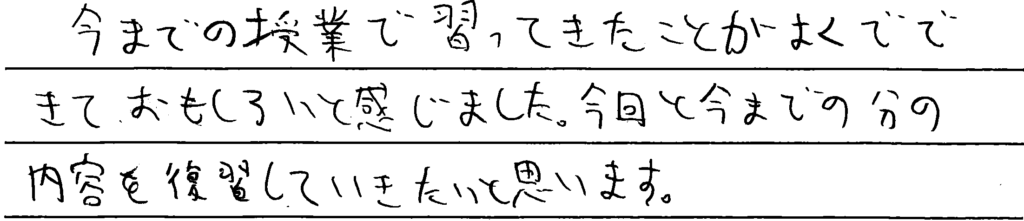 今までの授業で習ってきたことがよくでで
きて おもしろいと感じました。今回と今までの分の
内容を復習していきたいと思います。